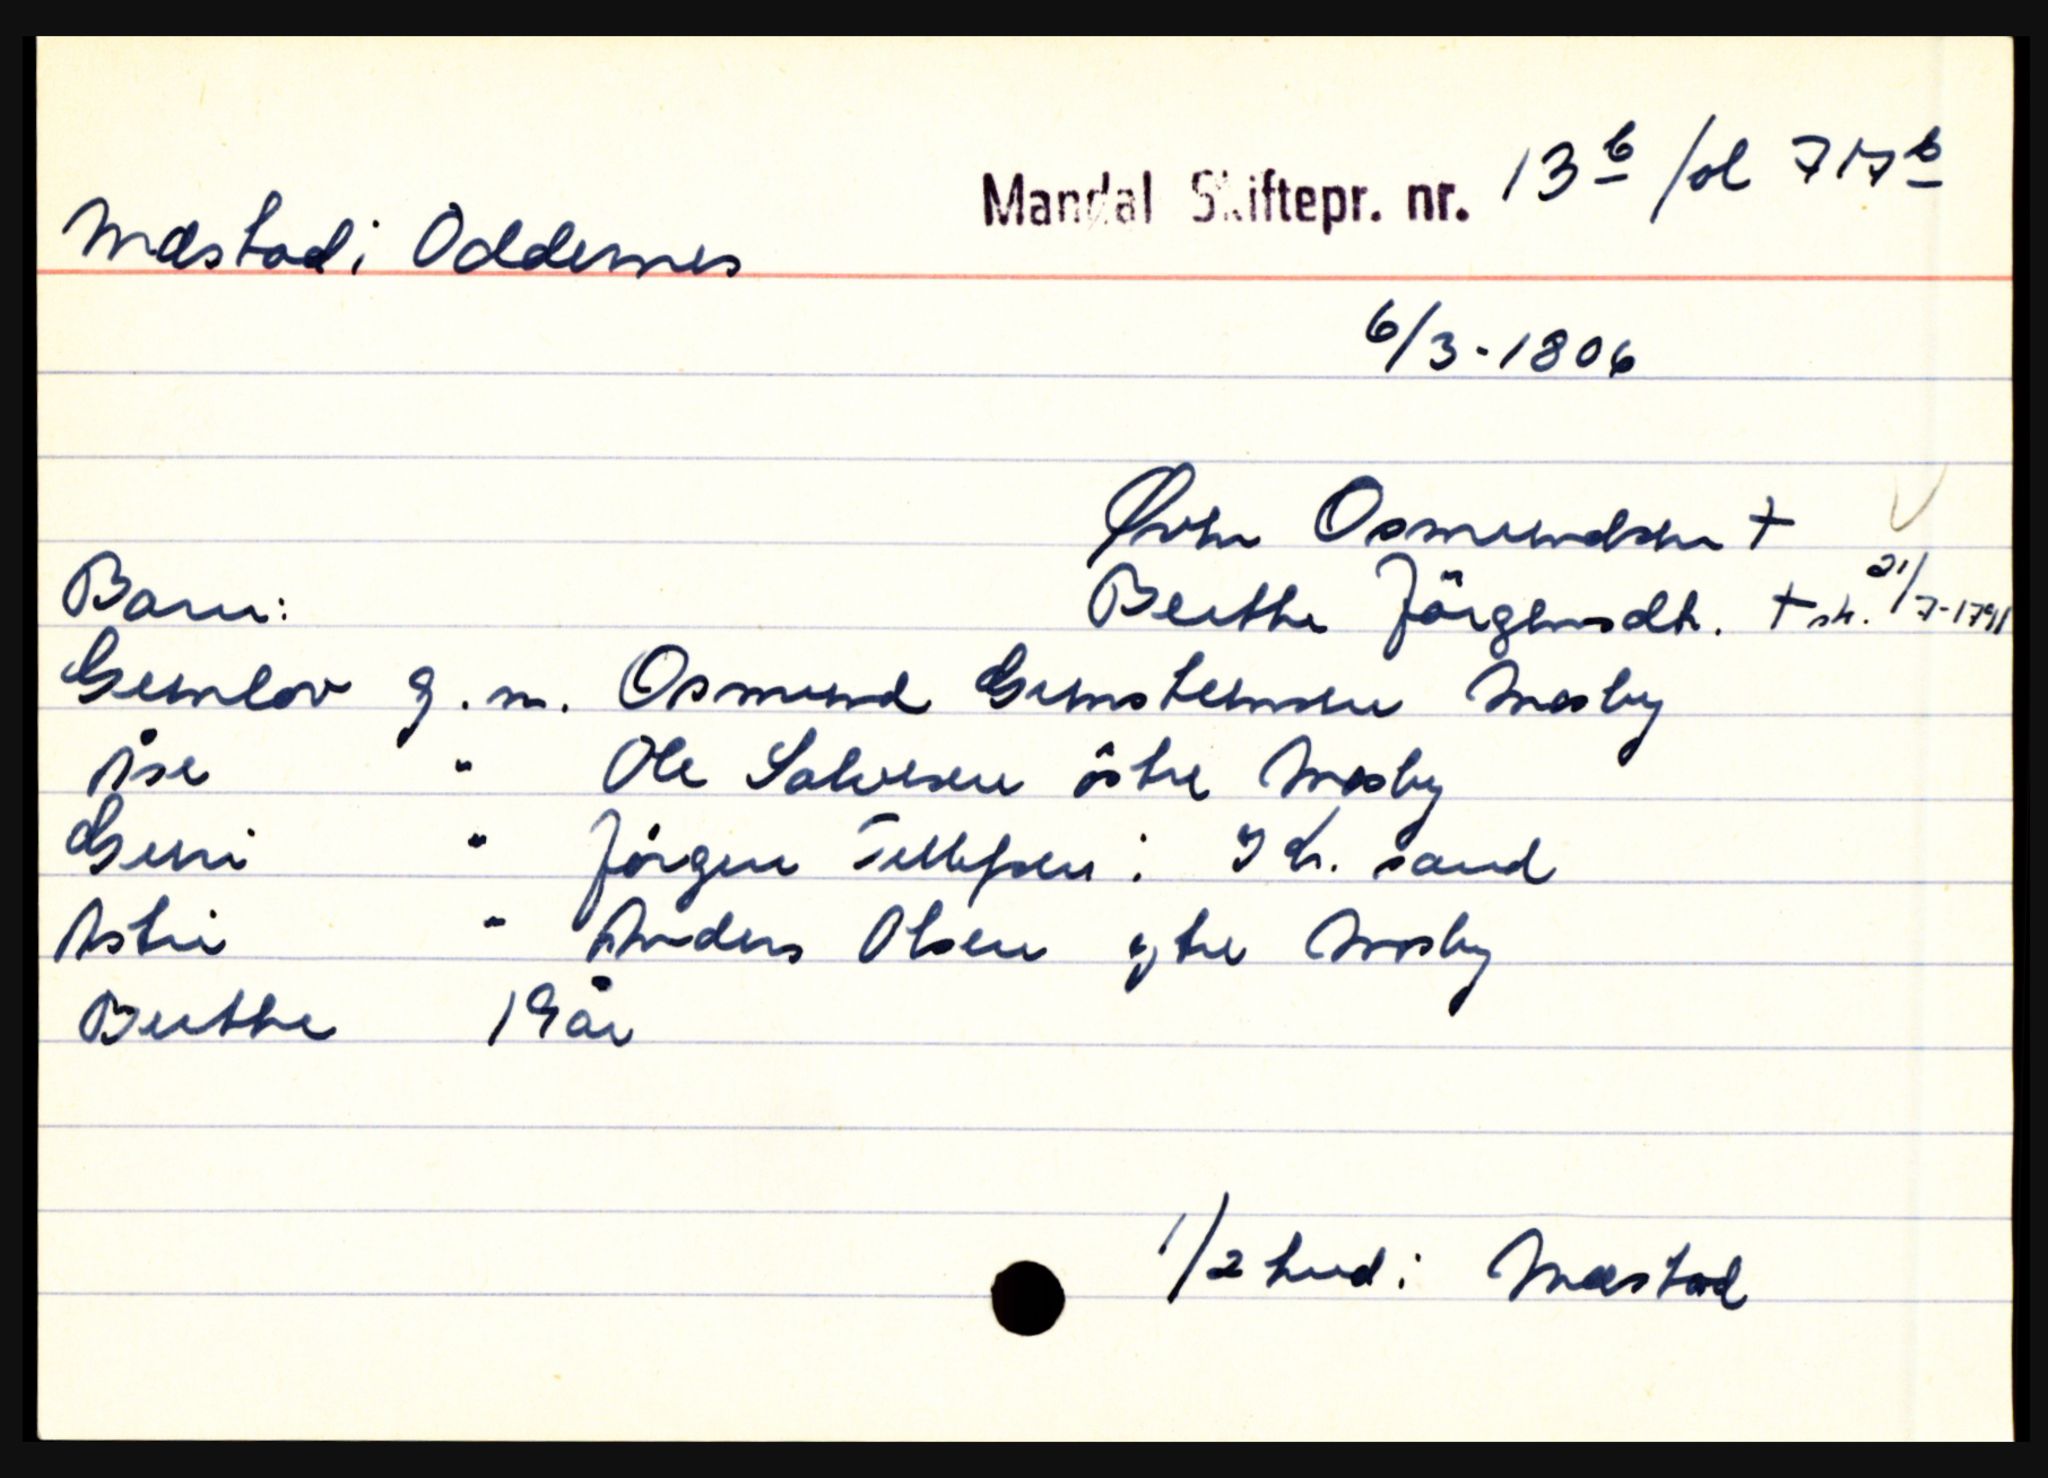 Mandal Skiftepr. nr. 13 b fol 717 b
Mæstad i Oddernes
6/3-1806
Osmundsen +
Barn: Berthe Jörgensdtr. + sk. 21/7-1791
Gunlov g. m. Osmund Gunsteinsen Mosby
Åse " Ole Salvesen östre Mosby
Guri " Jörgen Tellefsen i Kr. sand
Astri " Anders Olsen ytre Mosby
Berthe 19 år
1/2 hud i Mæstad